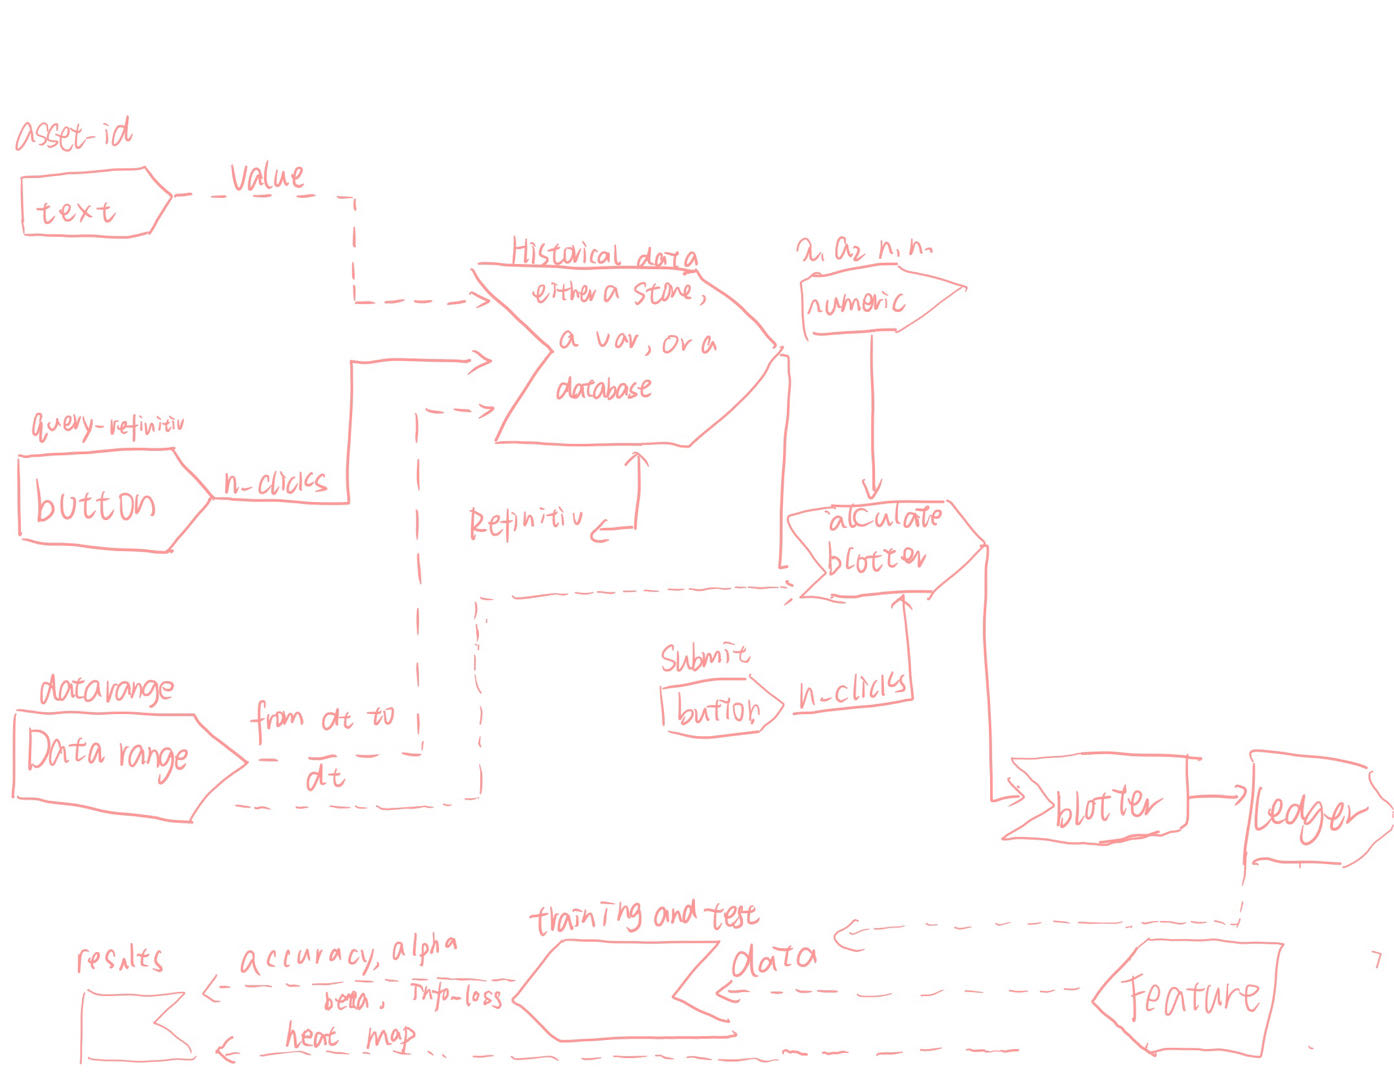 asset-id
text
value
Historical data
either a store,
a var, or a
database
numeric
query-refinitiv
button
n-clicks
Refinitiv
alculate
blotter
Submit
button
n-clicks
datarange
Data range
from dt to
dt
blotter
Ledger
training and test
data
Feature
results
accuracy, alpha
beta, info-loss
heat map